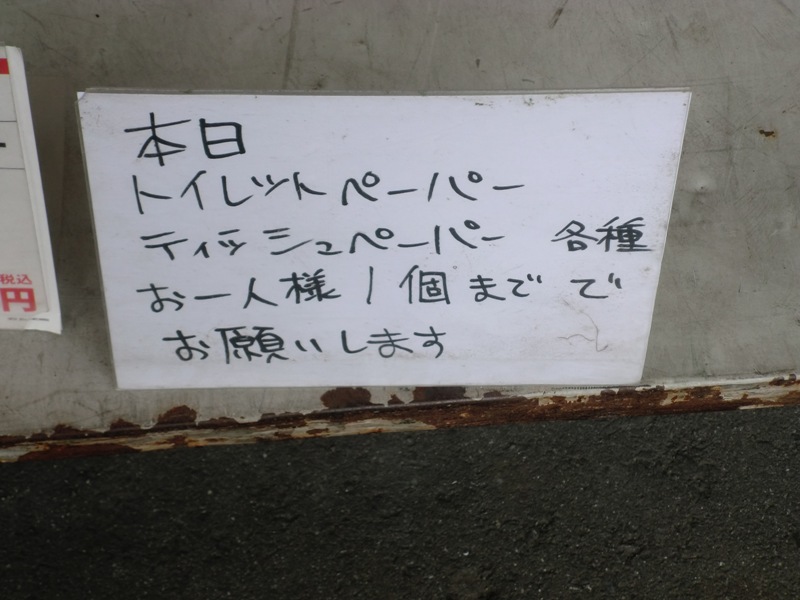 本日
トイレットペーパー
ティッシュペーパー 各種
お一人様1個までで
お願いします
税込
円